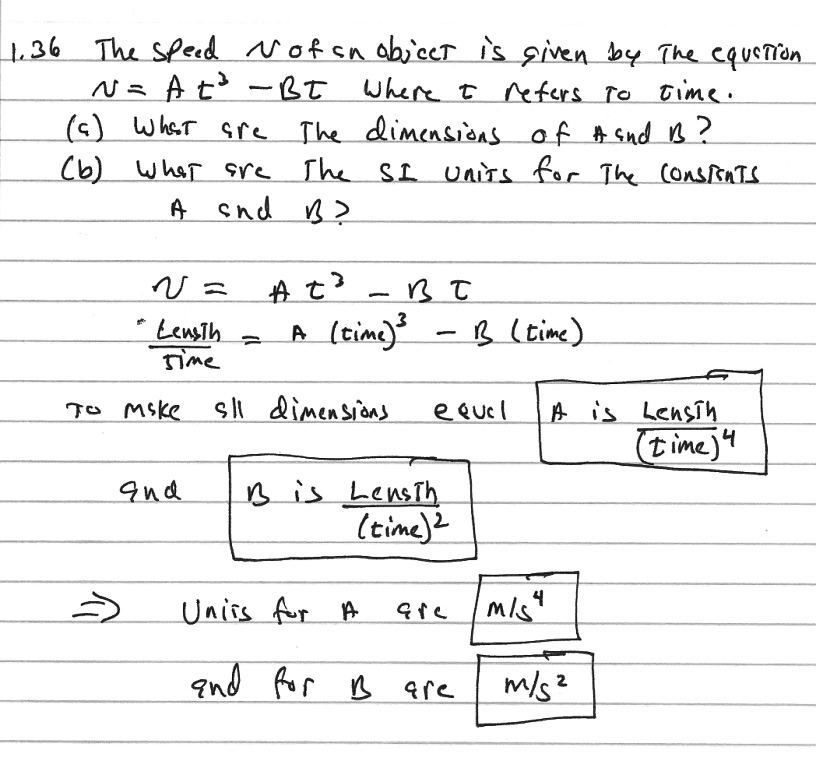 1.36 The speed v of an object is given by the equation
v = At³ - Bt where t refers to time.
(a) What are the dimensions of A and B?
(b) What are the SI units for the constants
A and B?
v = At³ - Bt
Length/Time = A (time)³ - B (time)
To make all dimensions equal A is Length/(time)⁴
and B is Length/(time)²
⇒ Units for A are m/s⁴
and for B are m/s²